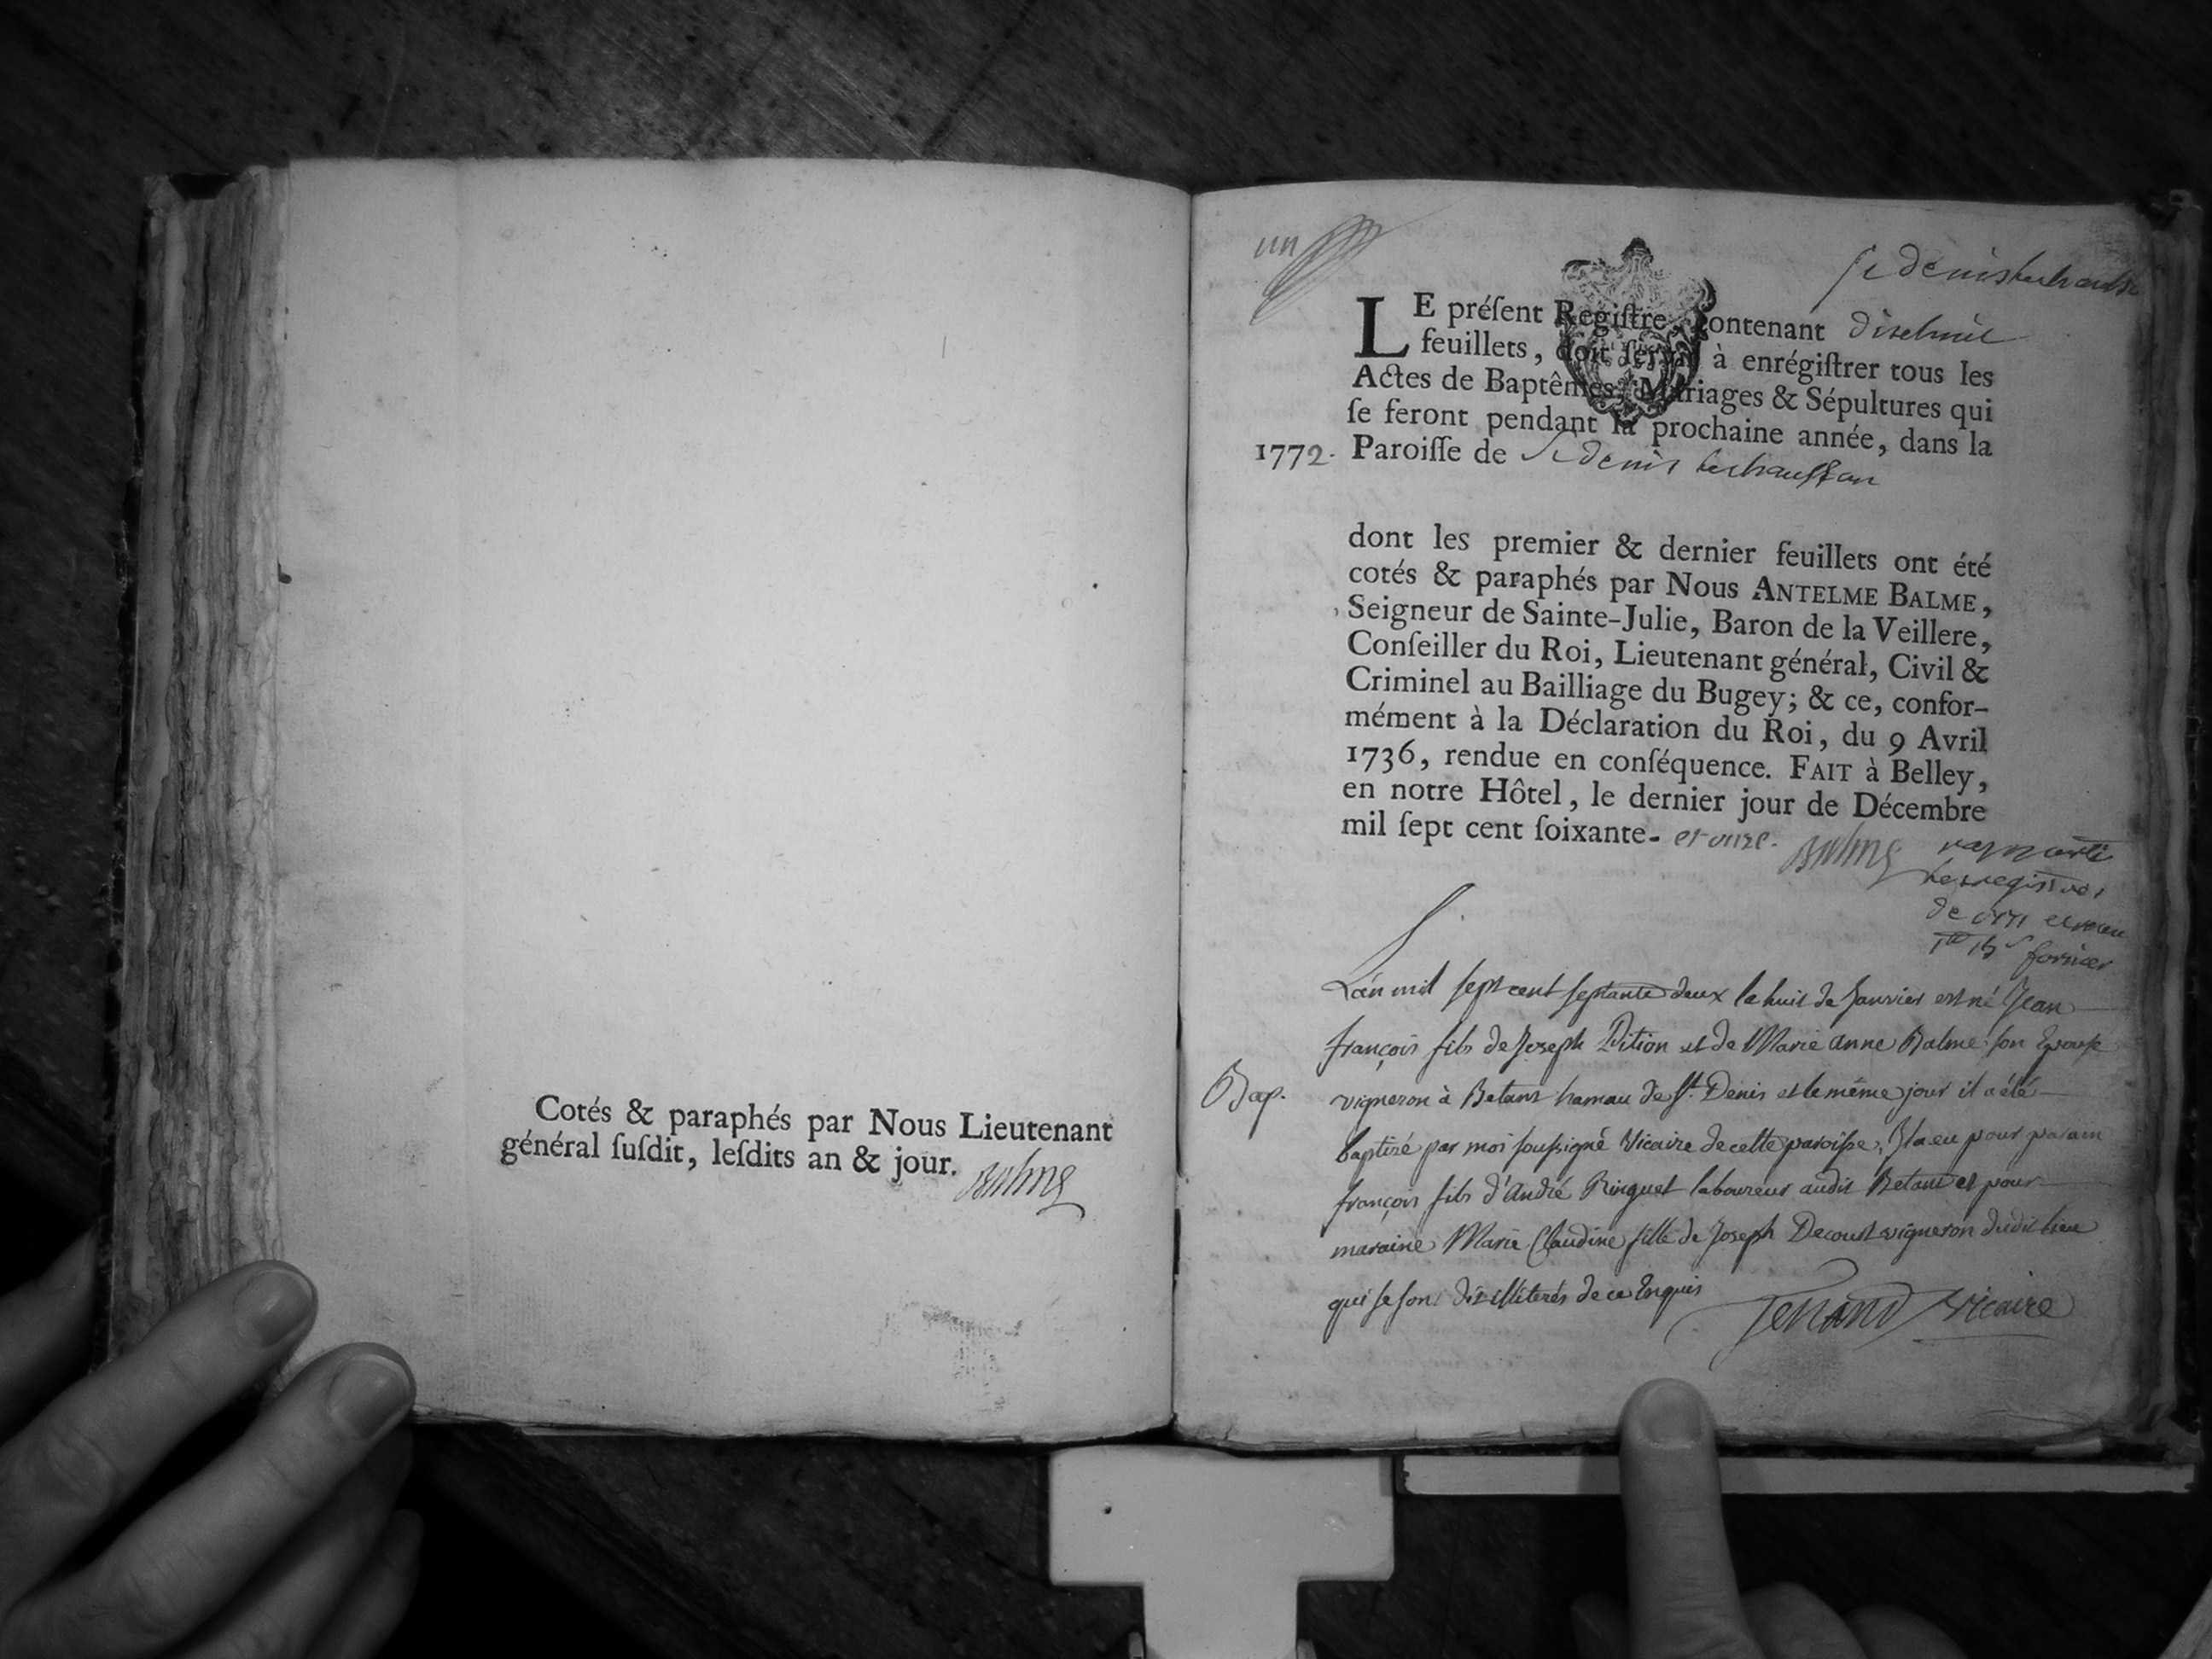 Cotés & paraphés par Nous Lieutenant
général ſuſdit, leſdits an & jour.
Balme
un
St denis
LE préſent Regiſtre, contenant dixhuit
feuillets, doit ſervir à enrégiſtrer tous les
Actes de Baptêmes, Mariages & Sépultures qui
ſe feront pendant la prochaine année, dans la
1772. Paroiſſe de St denis
dont les premier & dernier feuillets ont été
cotés & paraphés par Nous ANTELME BALME,
Seigneur de Sainte-Julie, Baron de la Veillere,
Conſeiller du Roi, Lieutenant général, Civil &
Criminel au Bailliage du Bugey; & ce, confor-
mément à la Déclaration du Roi, du 9 Avril
1736, rendue en conſéquence. FAIT à Belley,
en notre Hôtel, le dernier jour de Décembre
mil ſept cent ſoixante- et onze. Balme
L'an mil sept cent septante deux le huit de Janvier est né Jean
françois fils de Joseph Pition et de Marie anne Balme son Epouse
Bap.
vigneron à Betant hamau de St. Denis et le même jour il a été
baptizé par moi soussigné Vicaire de cette paroisse, Il a eu pour parain
françois fils d'André Ringuet laboureur audit Betant et pour
maraine Marie Claudine fille de Joseph Decourt vigneron dudit lieu
qui se sont dis illiterés de ce Enquis
vicaire